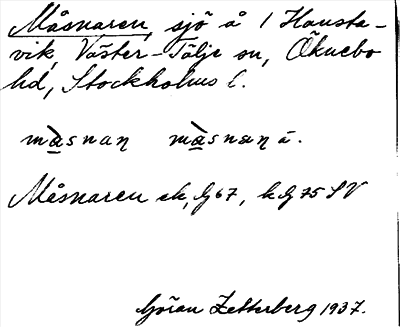 Måsnaren, sjö å / Hausta-
vik, Väster-Tälje sn, Öknebo
hd, Stockholms l.
màsnaṇ màsnaṇ ä.
Måsnaren ek, G 67, kG 75 SV
Göran Zetterberg 1937.